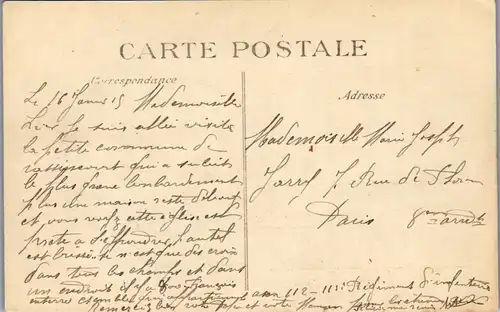 CARTE POSTALE
Correspondance
Adresse
Le 16 Janv 15 Mademoiselle
Hier je suis allé visité
la petite commune de
qui a subit
le plus grave bombardement
plus une maison reste debout
et vous verrez cette église est
prete a s'effondrer l'autel
est brisé. Ce n'est que des croix
dans tous les champs et dans
un endroit il y a 200 Français
enterré ensemble appartenant aux 112 - 111e Régiment d'infanterie
remerciez votre papa et votre Maman
Mademoiselle Marie Joseph
Jarry 7 Rue de
Paris 8eme arrdt